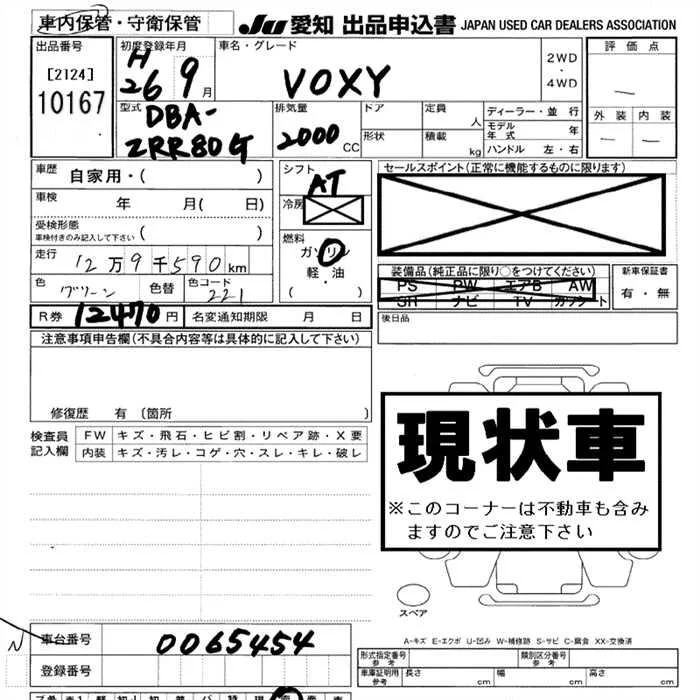 車内保管・守衛保管
JU 愛知 出品申込書 JAPAN USED CAR DEALERS ASSOCIATION
出品番号
[2124]
10167
初度登録年月
H
26 9月
車名・グレード
VOXY
2WD
・
4WD
評価点
—
外装 内装
— —
型式
DBA-
ZRR80G
排気量
2000 CC
ドア
形状
定員
人
積載
kg
ディーラー・並行
モデル
年式 年
ハンドル 左・右
車歴
自家用・( )
車検
年 月( 日)
受検形態
車検付きのみ記入して下さい ( )
走行
12万9千590km
色
グリーン
色替
色コード
221
シフト
AT
冷房
燃料
ガソリン
軽・油
( )
セールスポイント(正常に機能するものに限ります)
装備品(純正品に限り○をつけてください)
PS PW エアB AW
SR ナビ TV カワシート
新車保証書
有・無
後日品
R券 12470円 名変通知期限 月 日
注意事項申告欄(不具合内容等は具体的に記入して下さい)
修復歴 有 〔箇所 〕
検査員
記入欄
FW キズ・飛石・ヒビ割・リペア跡・X要
内装 キズ・汚レ・コゲ・穴・スレ・キレ・破レ
現状車
※このコーナーは不動車も含み
ますのでご注意下さい
スペア
A-キズ E-エクボ U-凹み W-補修跡 S-サビ C-腐食 XX-交換済
N
車台番号 0065454
登録番号
形式指定番号
参考
類別区分番号
参考
車庫証明用
参考
長さ cm 幅 cm 高さ cm